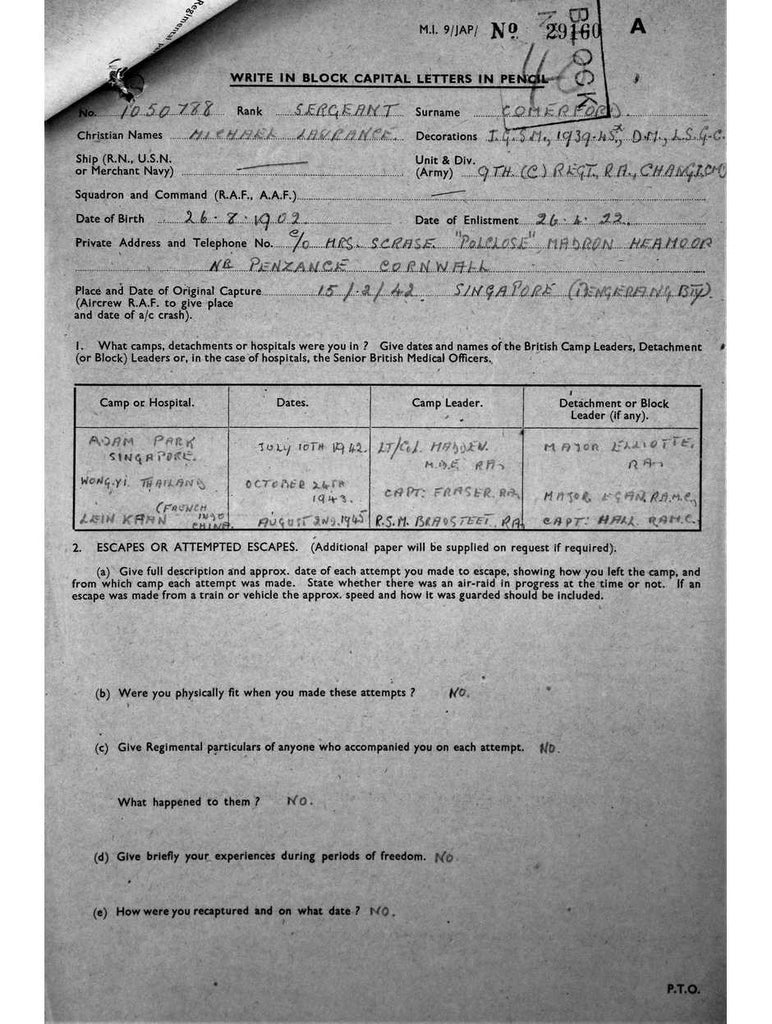 Regimental
M.I. 9/JAP/ No 29160 A
BLOCK
WRITE IN BLOCK CAPITAL LETTERS IN PENCIL
No. 1050788 Rank SERGEANT Surname COMERFORD.
Christian Names MICHAEL LAURANCE. Decorations I.G.S.M., 1939-45*, D.M., L.S.G.C.
Ship (R.N., U.S.N.
or Merchant Navy)
Unit & Div.
(Army) 9TH (C) REGT, RA, CHANGI,
Squadron and Command (R.A.F., A.A.F.)
Date of Birth 26-8-1902. Date of Enlistment 26-4-22.
Private Address and Telephone No. c/o MRS. SCRASE "POLCLOSE", MADRON HEAMOOR
NR PENZANCE CORNWALL
Place and Date of Original Capture 15/2/42. SINGAPORE (PENGERANG, Bty).
(Aircrew R.A.F. to give place
and date of a/c crash).
1. What camps, detachments or hospitals were you in ? Give dates and names of the British Camp Leaders, Detachment
(or Block) Leaders or, in the case of hospitals, the Senior British Medical Officers.
Camp or Hospital. Dates. Camp Leader. Detachment or Block
Leader (if any).
ADAM PARK
SINGAPORE. JULY 10TH 1942. LT/Col. MADDEN.
M.B.E RA. MAJOR ELLIOTTE.
RA.
WONG.YI. THAILAND OCTOBER 24TH
1943. CAPT: FRASER. RA. MAJOR EGAN, R.A.M.C.
LEIN KAHN (FRENCH
INDO
CHINA. AUGUST 2ND, 1945 R.S.M. BRADSTEET, RA. CAPT: HALL. RAMC.
2. ESCAPES OR ATTEMPTED ESCAPES. (Additional paper will be supplied on request if required).
(a) Give full description and approx. date of each attempt you made to escape, showing how you left the camp, and
from which camp each attempt was made. State whether there was an air-raid in progress at the time or not. If an
escape was made from a train or vehicle the approx. speed and how it was guarded should be included.
(b) Were you physically fit when you made these attempts ? NO.
(c) Give Regimental particulars of anyone who accompanied you on each attempt. NO.
What happened to them ? NO.
(d) Give briefly your experiences during periods of freedom. NO
(e) How were you recaptured and on what date ? NO.
P.T.O.